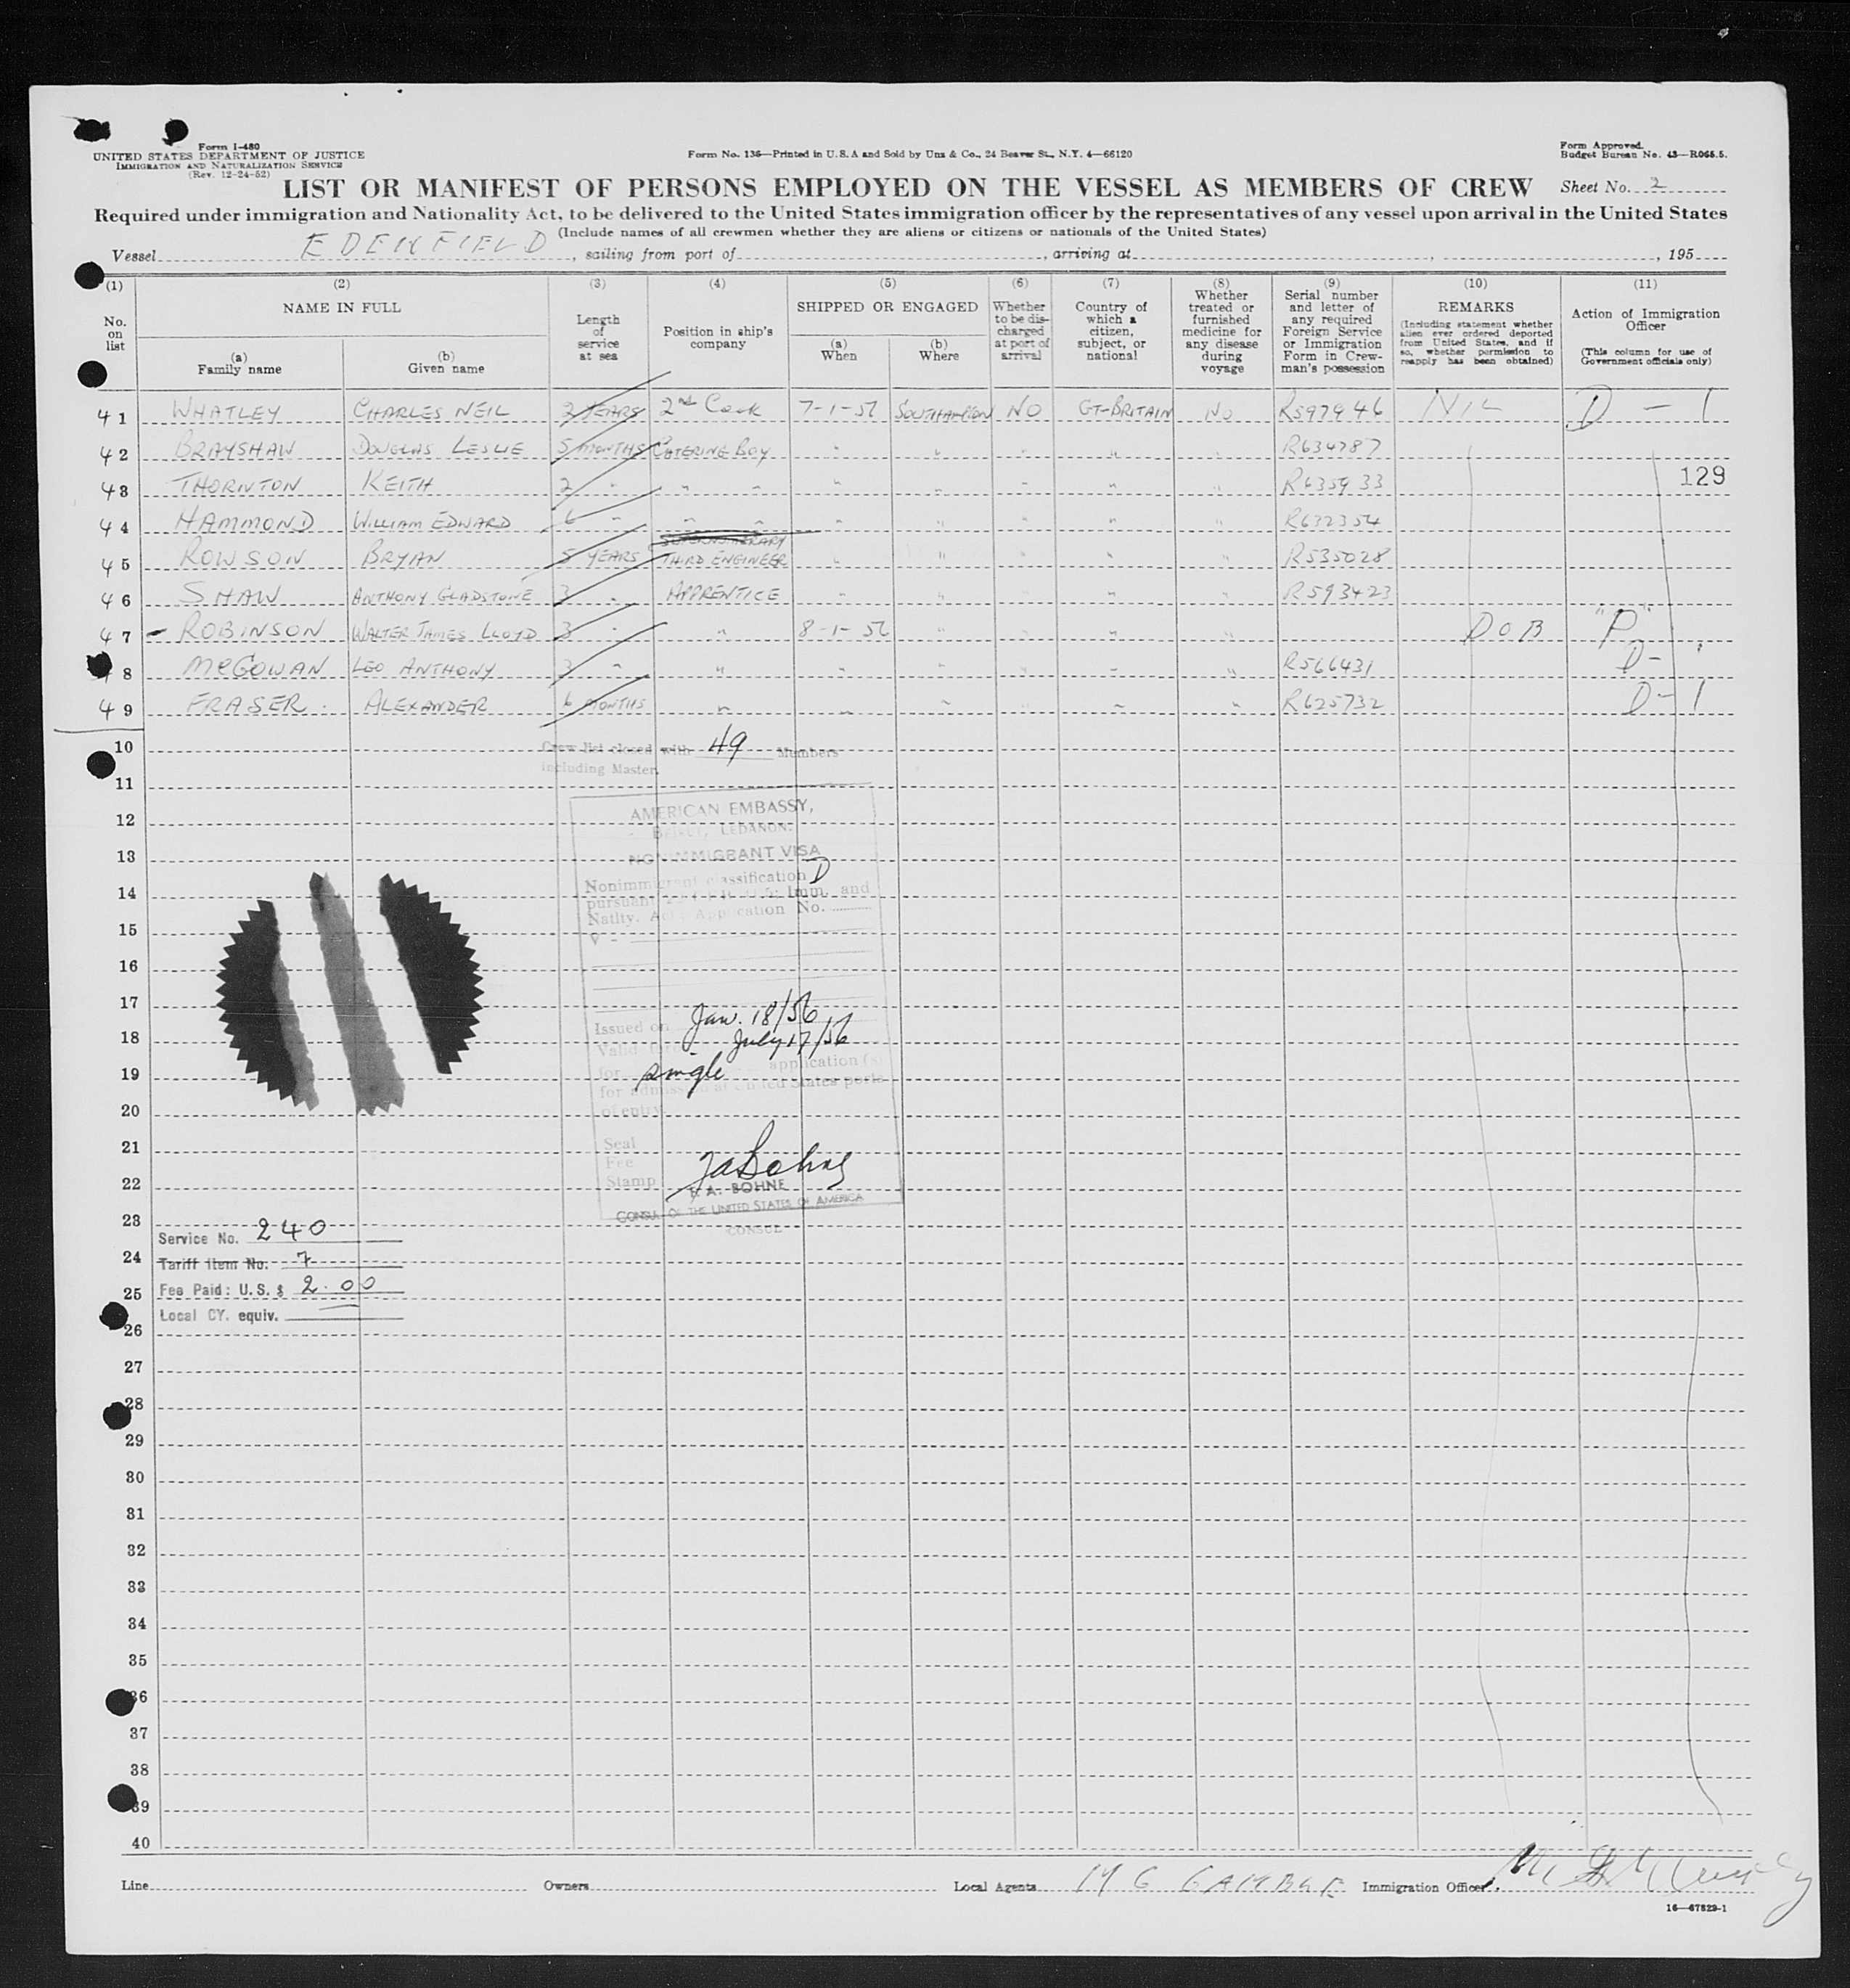 Form I-480
UNITED STATES DEPARTMENT OF JUSTICE
IMMIGRATION AND NATURALIZATION SERVICE
(Rev. 12-24-52)
Form No. 136—Printed in U.S.A and Sold by Unz & Co., 24 Beaver St., N.Y. 4—66120
Form Approved.
Budget Bureau No. 43—R065.5.
LIST OR MANIFEST OF PERSONS EMPLOYED ON THE VESSEL AS MEMBERS OF CREW
Sheet No. 2
Required under immigration and Nationality Act, to be delivered to the United States immigration officer by the representatives of any vessel upon arrival in the United States
(Include names of all crewmen whether they are aliens or citizens or nationals of the United States)
Vessel EDENFIELD, sailing from port of, arriving at, , 195
(1) No. on list
(2) NAME IN FULL
(a) Family name
(b) Given name
(3) Length of service at sea
(4) Position in ship's company
(5) SHIPPED OR ENGAGED
(a) When
(b) Where
(6) Whether to be discharged at port of arrival
(7) Country of which a citizen, subject, or national
(8) Whether treated or furnished medicine for any disease during voyage
(9) Serial number and letter of any required Foreign Service or Immigration Form in Crewman's possession
(10) REMARKS
(Including statement whether alien ever ordered deported from United States, and if so, whether permission to reapply has been obtained)
(11) Action of Immigration Officer
(This column for use of Government officials only)
41 WHATLEY CHARLES NEIL 2 YEARS 2nd Cook 7-1-56 SOUTHAMPTON NO GT-BRITAIN NO R597946 NIL D - 1
42 BRAYSHAW DOUGLAS LESLIE 5 MONTHS CATERING BOY " " " " " R634787
129
43 THORNTON KEITH 2 " " " " " " " " R635933
44 HAMMOND WILLIAM EDWARD 6 " " " " " " " " R632354
SUPERNUMERARY
45 ROWSON BRYAN 5 YEARS THIRD ENGINEER " " " " " R535028
46 SHAW ANTHONY GLADSTONE 3 " APPRENTICE " " " " " R593423
47 ROBINSON WALTER JAMES LLOYD 3 " " 8-1-56 " " " " DOB "P"
48 McGOWAN LEO ANTHONY 3 " " " " " " " R566431 D-
49 FRASER. ALEXANDER 6 MONTHS " " " " " " R625732 D-1
10 Crew list closed with 49 Members
including Master.
11
AMERICAN EMBASSY,
12
BEIRUT, LEBANON.
13
NONIMMIGRANT VISA
Nonimmigrant classification D
14
pursuant Imm. and
Natlty. Act Application No.
15
V -
16
17
Issued on Jan. 18/56
18
Valid July 17/56
for single application(s)
19
for admission at United States ports
of entry.
20
21
Seal
Fee
22
Stamp
F. A. BOHNE
CONSUL OF THE UNITED STATES OF AMERICA
CONSUL
23
Service No. 240
24
Tariff Item No. 7
25
Fee Paid: U.S. $ 2.00
Local CY. equiv.
26
27
28
29
30
31
32
33
34
35
36
37
38
39
40
Line Owners Local Agents M G GAMBLE Immigration Officer
16—67829-1